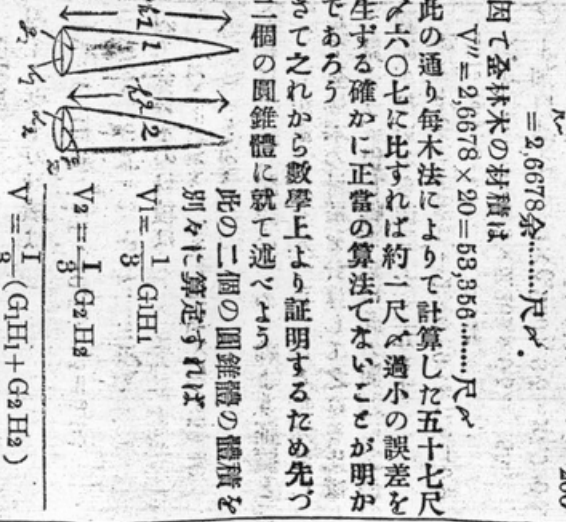 =2,6678余………尺〆。
因て全林木の材積は
V''=2,6678×20=53,356………尺〆
此の通り毎木法によりて計算した五十七尺
〆六〇七に比すれば約一尺〆過小の誤差を
生ずる確かに正當の算法でないことが明か
であろう
さて之れから數學上より証明するため先づ
二個の圓錐體に就て述べよう
此の二個の圓錐體の體積を
別々に算定すれば
V1=1/3 G1H1
V2=1/3 G2H2
V=1/3(G1H1+G2H2)
h1 1
h2 2